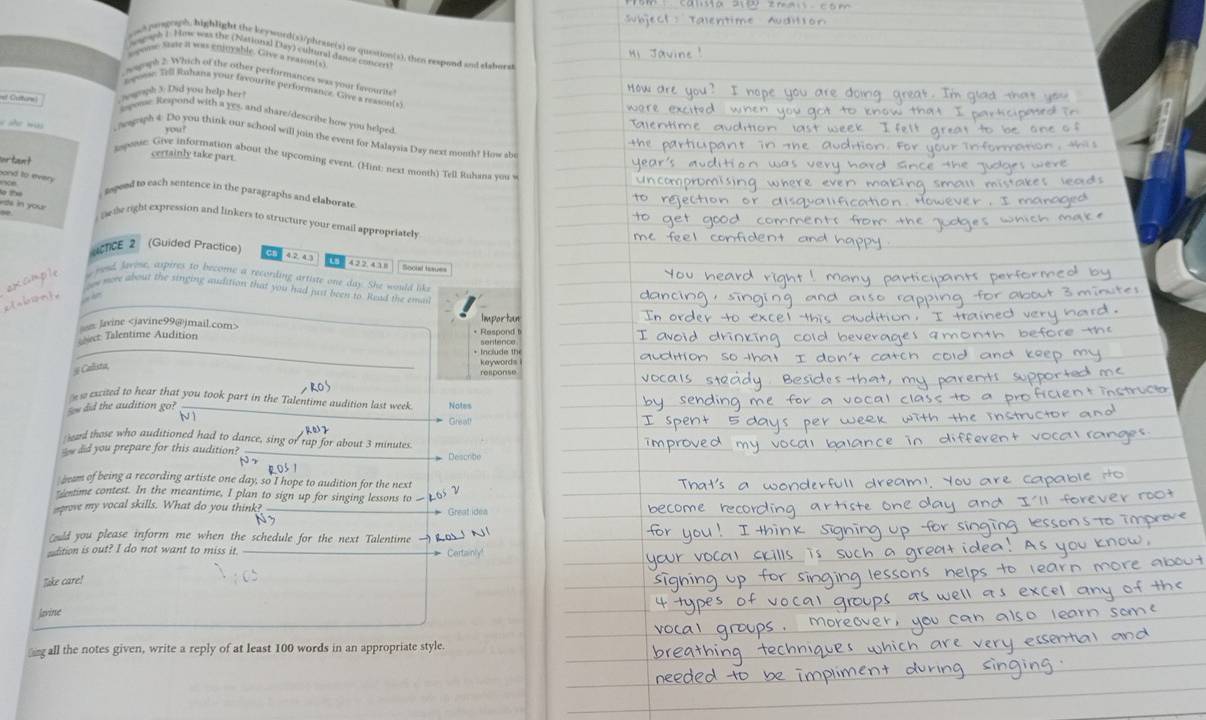 paragraph, highlight the keyword(s)/phrase(s) or question(s), then respond and elaborat
1: How was the (National Day) cultural dance concert?
State it was enjoyable. Give a reason(s).
2: Which of the other performances was your favourite?
Tell Ruhana your favourite performance. Give a reason(s).
3: Did you help her?
Respond with a yes, and share/describe how you helped.
4: Do you think our school will join the event for Malaysia Day next month? How abo
you?
Give information about the upcoming event. (Hint: next month) Tell Ruhana you w
certainly take part.
to each sentence in the paragraphs and elaborate.
the right expression and linkers to structure your email appropriately
she was
to every
in your
PRACTICE 2 (Guided Practice) CS 4.2, 4.3 LS 4.2.2, 4.3.8 Social Issues
example
Javine, aspires to become a recording artiste one day. She would like
more about the singing audition that you had just been to. Read the email
Javine <javine99@jmail.com>
Talentime Audition
Importan
• Respond t
sentence.
• Include the
keywords i
response.
Callista,
so excited to hear that you took part in the Talentime audition last week.
did the audition go?
Notes
Great!
N1
heard those who auditioned had to dance, sing or rap for about 3 minutes.
did you prepare for this audition?
Describe
N2
dream of being a recording artiste one day, so I hope to audition for the next
Talentime contest. In the meantime, I plan to sign up for singing lessons to
improve my vocal skills. What do you think?
Great idea
N3
Could you please inform me when the schedule for the next Talentime
audition is out? I do not want to miss it.
Certainly!
Take care!
Javine
all the notes given, write a reply of at least 100 words in an appropriate style.
Subject: Talentime Audition
Hi Javine!
How are you? I hope you are doing great. I'm glad that you
were excited when you got to know that I participated in
Talentime audition last week. I felt great to be one of
the participant in the audition. For your information, this
year's audition was very hard since the judges were
uncompromising where even making small mistakes leads
to rejection or disqualification. However, I managed
to get good comments from the judges which make
me feel confident and happy.
You heard right! many participants performed by
dancing, singing and also rapping for about 3 minutes.
In order to excel this audition, I trained very hard.
I avoid drinking cold beverages a month before the
audition so that I don't catch cold and keep my
vocals steady. Besides that, my parents supported me
by sending me for a vocal class to a proficient instructor
I spent 5 days per week with the instructor and
improved my vocal balance in different vocal ranges.
That's a wonderfull dream!. You are capable to
become recording artiste one day and I'll forever root
for you! I think signing up for singing lessons to improve
your vocal skills is such a great idea! As you know,
signing up for singing lessons helps to learn more about
4 types of vocal groups as well as excel any of the
vocal groups. moreover, you can also learn some
breathing techniques which are very essential and
needed to be impliment during singing.